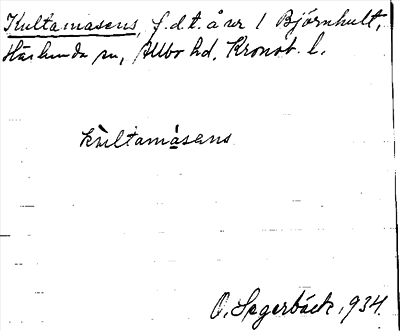 Kultamasens, f.d.t. å nr 1 Björnhult,
Härlunda sn, Allbo hd, Kronob. l.
kultamàsens
O. Segerbäck, 1934.